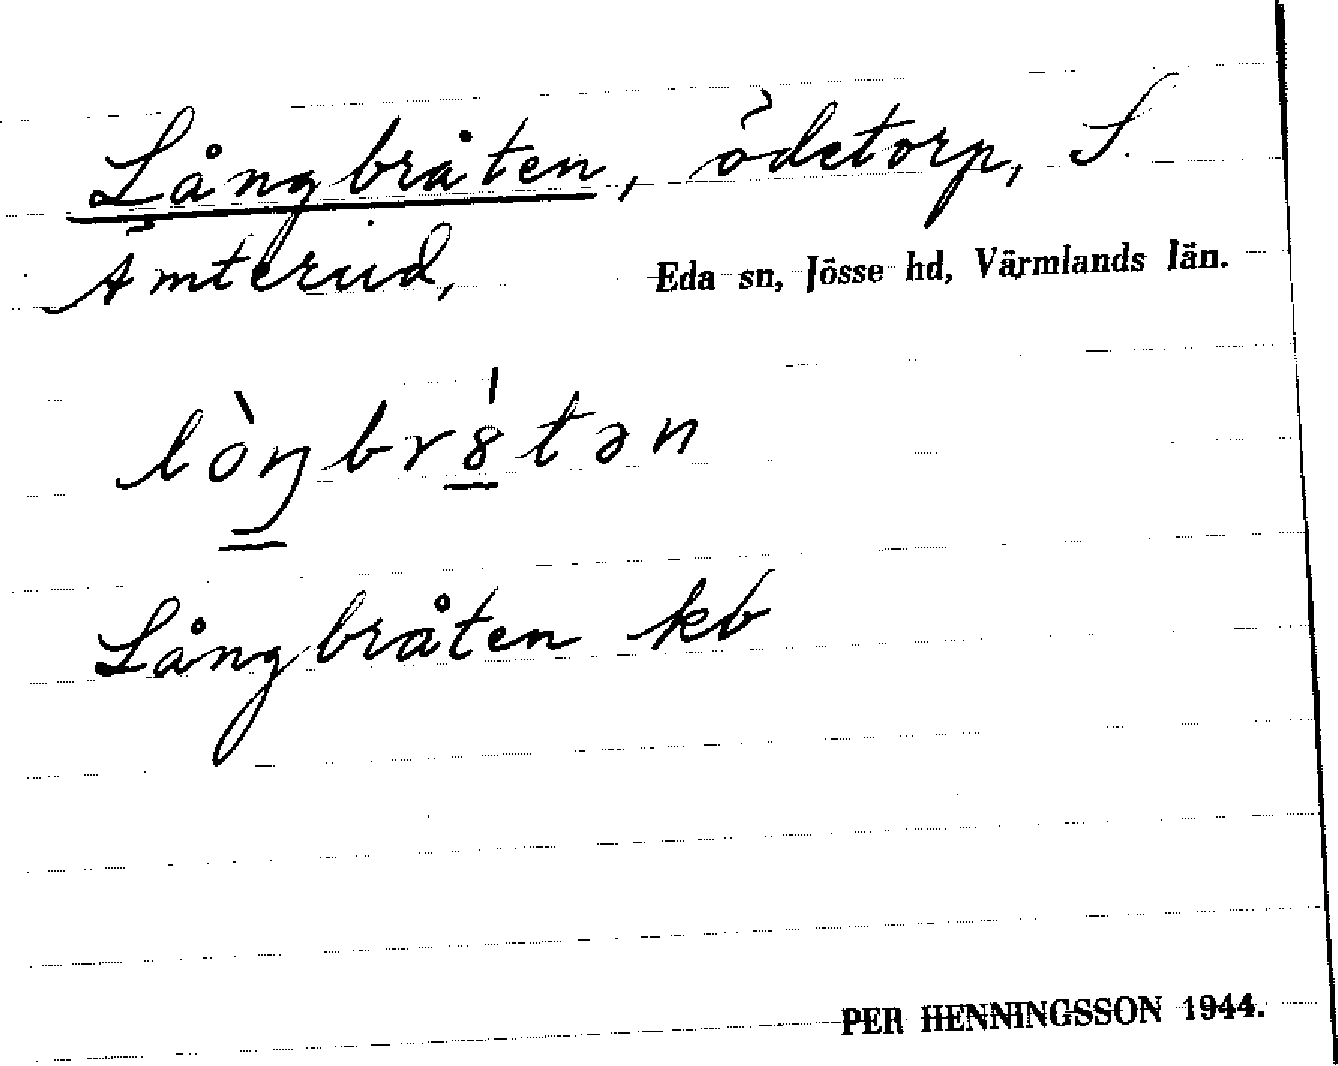 Långbråten, ödetorp, S.
Ämterud, Eda sn, Jösse hd, Värmlands län.
lòŋbr8́tən
Långbråten kb
PER HENNINGSSON 1944.